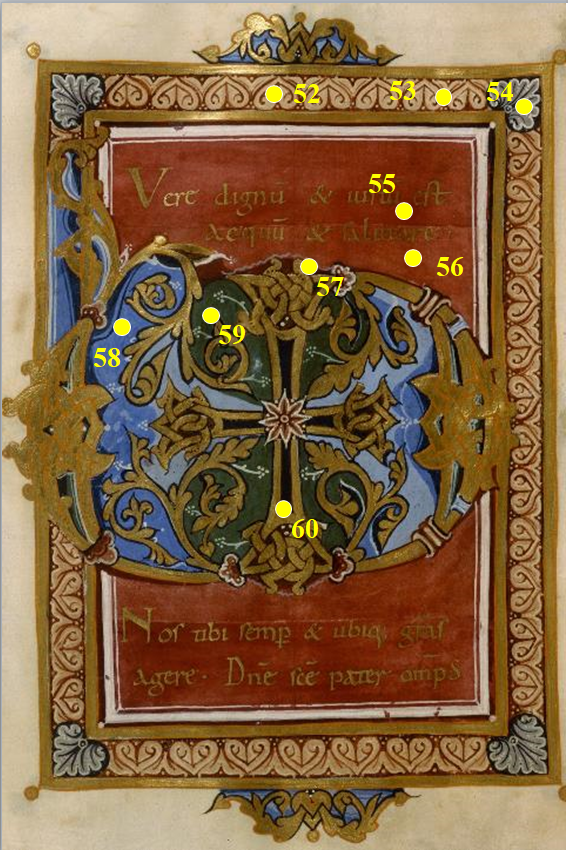 52
53
54
55
Vere dignū & iustū est
æquū & salutare·
56
57
58
59
60
Nos tibi semp̄ & ubiq; gr̄as
agere· Dn̄e sc̄e pater omp̄s